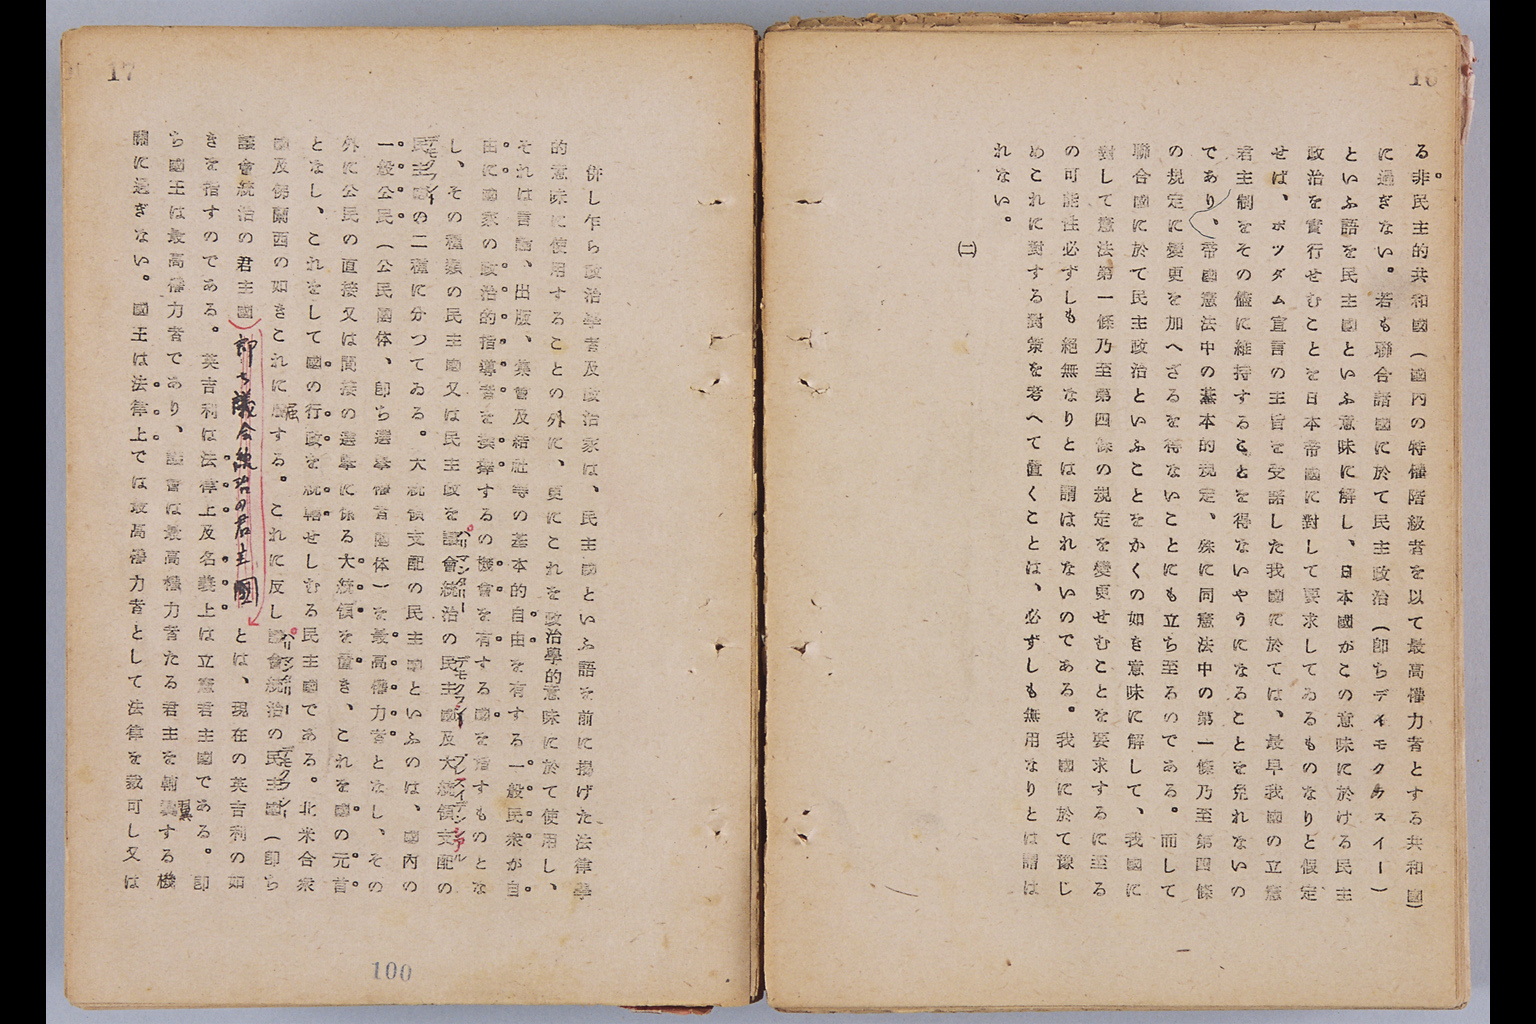 16
る非民主的共和國(國內の特權階級者を以て最高權力者とする共和國)
に過ぎない。若も聯合諸國に於て民主政治(卽ちデイモクラスイー)
といふ語を民主國といふ意味に解し、日本國がこの意味に於ける民主
政治を實行せむことを日本帝國に對して要求してゐるものなりと假定
せば、ポツダム宣言の主旨を受諾した我國に於ては、最早我國の立憲
君主制をその儘に維持することを得ないやうになることを免れないの
であり、帝國憲法中の基本的規定、殊に同憲法中の第一條乃至第四條
の規定に變更を加へざるを得ないことにも立ち至るのである。而して
聯合國に於て民主政治といふことをかくの如き意味に解して、我國に
對して憲法第一條乃至第四條の規定を變更せむことを要求するに至る
の可能性必ずしも絕無なりとは謂はれないのである。我國に於て豫じ
めこれに對する對策を考へて置くことは、必ずしも無用なりとは謂は
れない。
(二)
17
併し乍ら政治學者及政治家は、民主國といふ語を前に揭げた法律學
的意味に使用することの外に、更にこれを政治學的意味に於て使用し、
それは言論、出版、集會及結社等の基本的自由を有する一般民衆が自
由に國家の政治的指導者を選擇するの機會を有する國を意味するものとな
し、その種類の民主國又は民主政を議會統治の民主國及大統領支配の
パリアメンタリー デモクラシー プレスイデンシアル
民主國の二種に分つてゐる。大統領支配の民主國といふのは、國內の
デモクラシー
一般公民(公民團体、卽ち選擧權者團体)を最高權力者となし、その
外に公民の直接又は間接の選擧に係る大統領を置き、これを國の元首
となし、これをして國の行政を統轄せしむる民主國である。北米合衆
國及佛蘭西の如きこれに屬する。これに反し議會統治の民主國(卽ち
議會統治の君主國)卽ち議会統治の君主國とは、現在の英吉利の如
きを指すのである。英吉利は法律上及名義上は立憲君主國である。卽
ち國王は最高權力者であり、議會は最高權力者たる君主を輔翼する機
關に過ぎない。國王は法律上では最高權力者として法律を裁可し又は
100